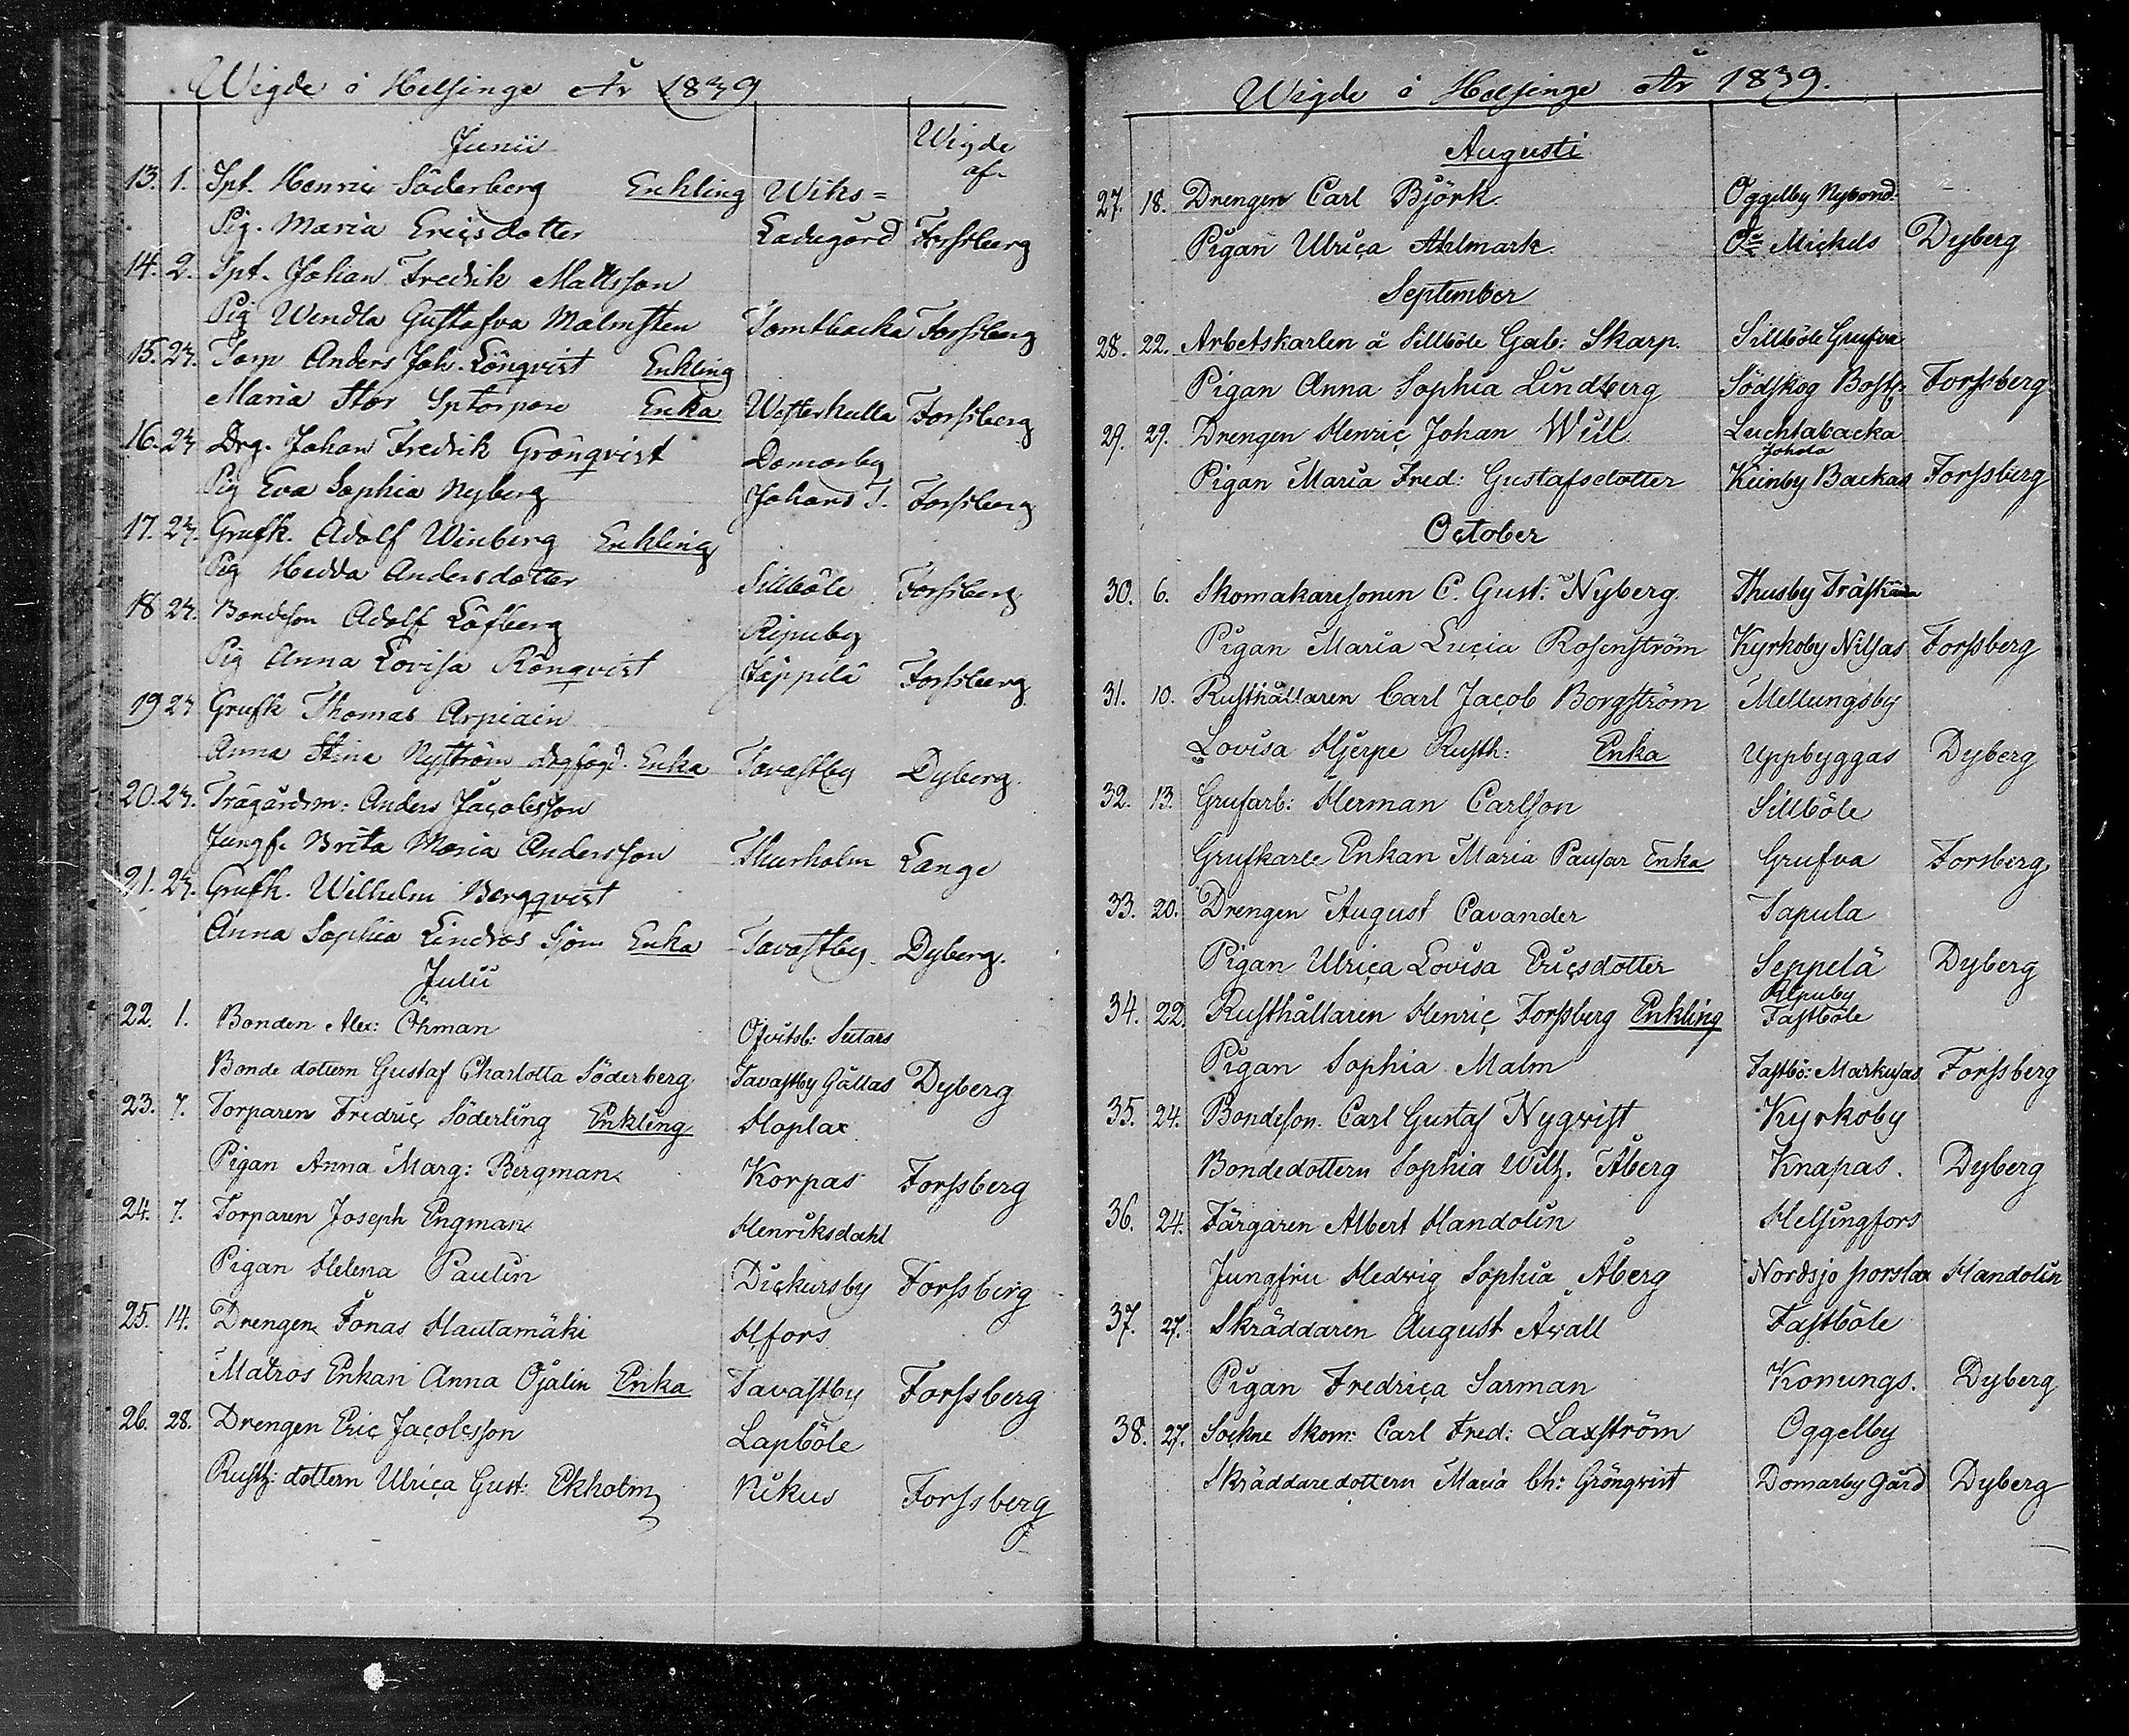 Wigde i Helsinge År 1839
Junii Wigde af
13. 1. Spt. Henric Söderberg Enkling Wiks=
Pig. Maria Ericsdotter Ladugård Forssberg
14. 2. Spt. Johan Fredrik Mattsson
Pig Wendla Gustafva Malmsten Tomtbacka Forssberg
15. 23. Torp Anders Joh. Lönqvist Enkling
Maria Stor Sptorpare Enka Westerkulla Forssberg
16. 23 Drg. Johan Fredrik Grönqvist Domarby
Pig Eva Sophia Nyberg Johans T. Forssberg
17. 23. Grufk. Adolf Winberg Enkling
Pig Hedda Andersdotter Sillböle Forssberg
18 23. Bondeson Adolf Löfberg Ripuby
Pig Anna Lovisa Rönqvist Jäppilä Forssberg
19 23 Grufk Thomas Arpiain
Anna Stina Nyström Enka Tavastby Dyberg.
20. 23. Trägårdsm: Anders Jacobsson
Jungf. Brita Maria Andersson Thurholm Lange
21. 23. Grufk. Wilhelm Bergqvist
Anna Sophia Lindros Sjöm Enka Tavastby Dyberg.
Julii
22. 1. Bonden Alex: Öhman Öfvitsb: Sutars
Bonde dottern Gustaf Charlotta Söderberg Tavastby Gållas Dyberg
23. 7. Torparen Fredric Söderling Enkling Hoplax
Pigan Anna Marg: Bergman Korpas Forssberg
24. 7. Torparen Joseph Engman Henriksdahl
Pigan Helena Paulin Dickursby Forssberg
25. 14. Drengen Jonas Hautamäki Hfors
Matros Enkan Anna Öjalin Enka Tavastby Forssberg
26. 28. Drengen Eric Jacobsson Lapböle
Rusth: dottern Ulrica Gust: Ekholm Rikus Forssberg
Wigde i Helsinge År 1839.
Augusti
27. 18. Drengen Carl Björk Oggelby Nybond.
Pigan Ulrica Ahlmark Mickels Dyberg
September
28. 22. Arbetskarlen å Sillböle Gab: Skarp. Sillböle Grufva
Pigan Anna Sophia Lindberg Södskog Bost: Forssberg
29. 29. Drengen Henric Johan Wiil Luchtabacka
Johola
Pigan Maria Fred: Gustafsdotter Kiinby Backas Forssberg
October
30. 6. Skomakaresonen C. Gust: Nyberg. Thusby Träskända
Pigan Maria Lucia Rosenström Kyrkoby Nilsas Forssberg
31. 10. Rusthållaren Carl Jacob Borgström Mellungsby
Lovisa Hjerpe Rusth: Enka Uppbyggas Dyberg
32. 13. Grufarb: Herman Carlson Sillböle
Grufkarls Enkan Maria Pausar Enka Grufva Forsberg
33. 20. Drengen August Cavander Tapula
Pigan Ulrica Lovisa Ericsdotter Seppelä Dyberg
Ripuby
34. 22. Rusthållaren Henric Forssberg Enkling Fastböle
Pigan Sophia Malm Fastbö: Markusas Forssberg
35. 24. Bondeson. Carl Gustaf Nyqvist Kyrkoby
Bondedottern Sophia Wilh. Åberg Knapas. Dyberg
36. 24. Färgaren Albert Handolin Helsingfors
Jungfru Hedvig Sophia Åberg Nordsjo porslax Handolin
37. 27. Skräddaren August Åvall Fastböle
Pigan Fredrica Sarman Konungs. Dyberg
38. 27. Sockne Skom: Carl Fred: Laxström Oggelby
Skräddaredottern Maria Ch: Grönqvist Domarby Gård Dyberg